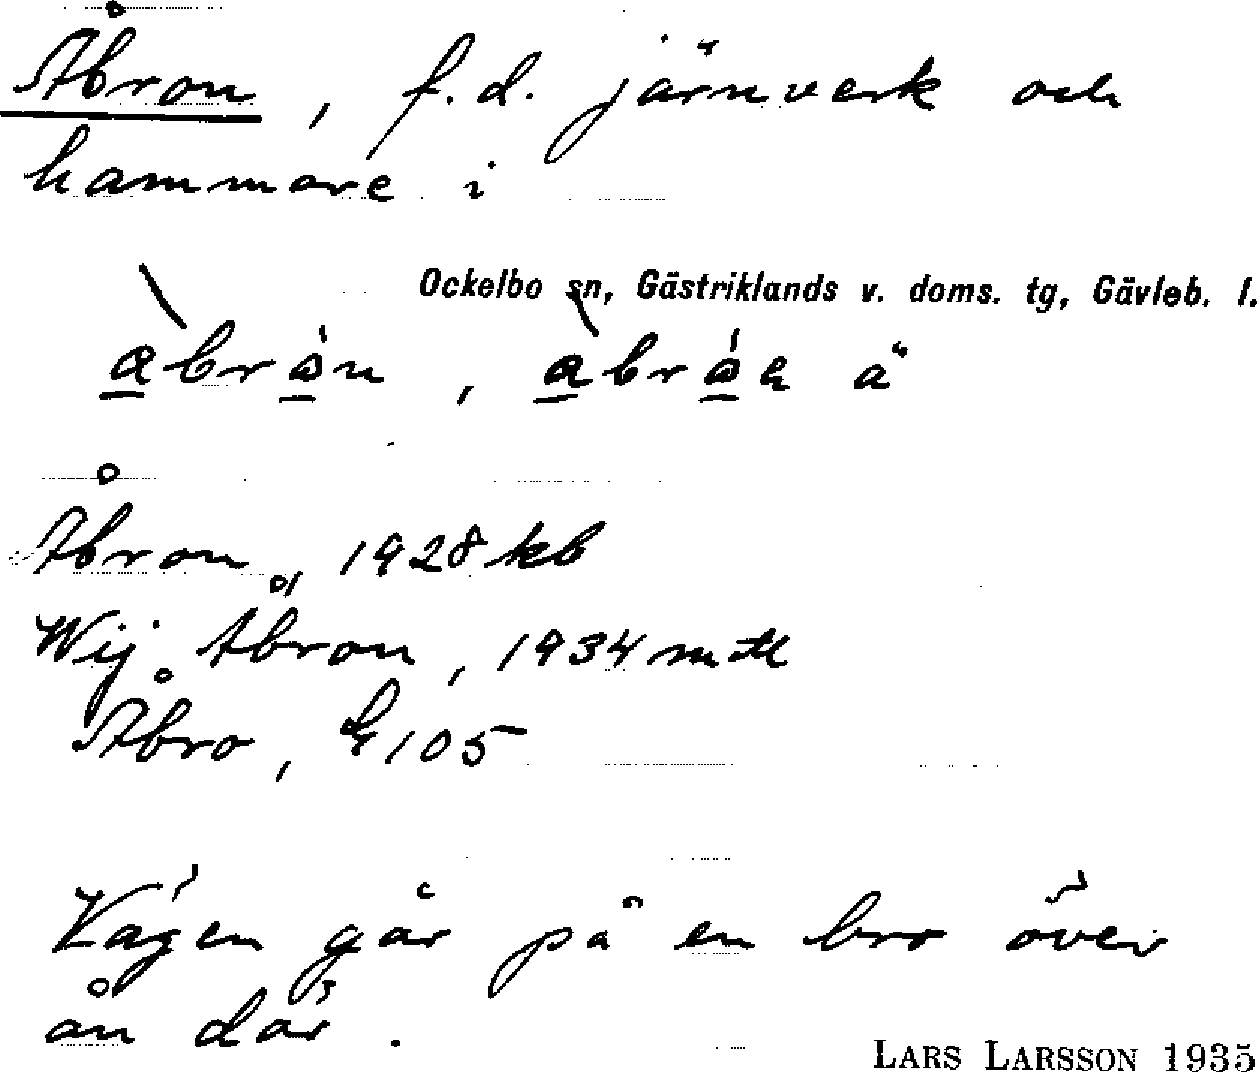 Åbron, f.d. järnverk och
hammare i
Ockelbo sn, Gästriklands v. doms. tg, Gävleb. l.
Åbron, 1928 kb
Wij Åbron, 1934 mtl
Åbro, G 105
Vägen går på en bro över
ån där.
LARS LARSSON 1935